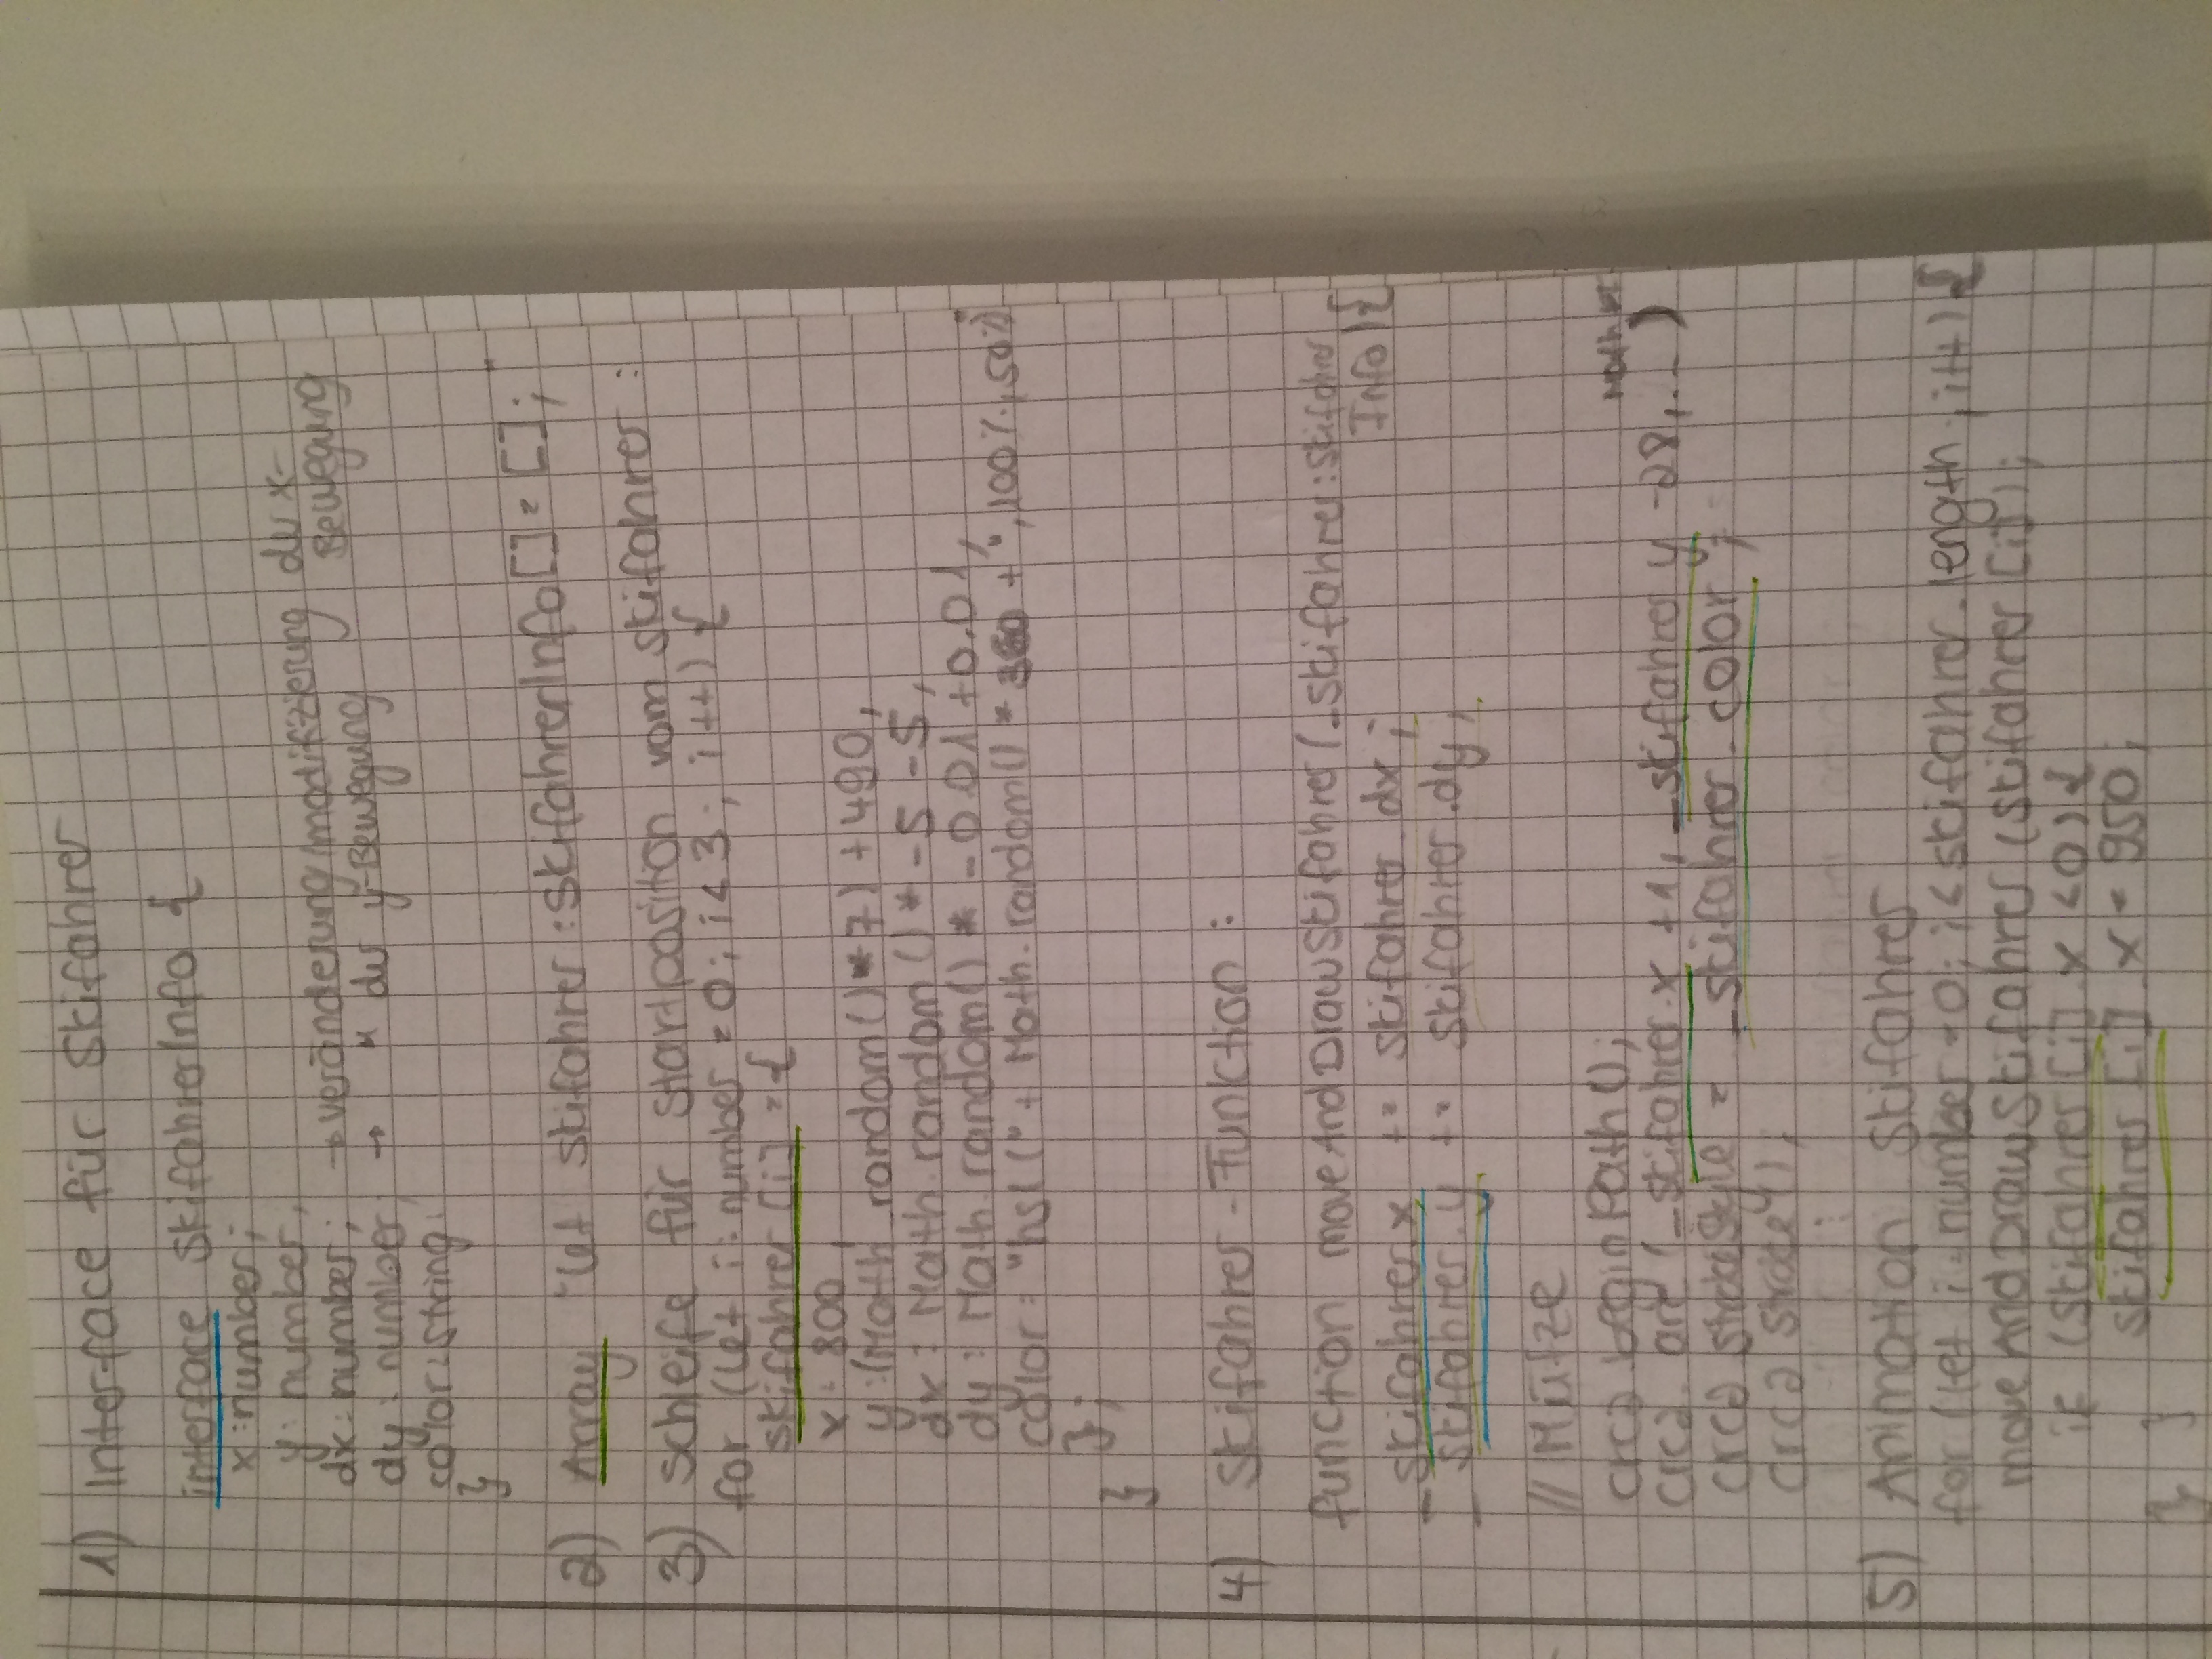 1) Interface für Skifahrer
interface SkifahrerInfo {
x: number;
y: number;
dx: number; → veränderung/modifizierung der x-Bewegung
dy: number; → " der y-Bewegung
color: string;
}
2) Array "let skifahrer: SkifahrerInfo[] = [];"
3) Schleife für Startposition vom Skifahrer:
for (let i: number = 0; i < 3; i++) {
skifahrer[i] = {
x: 800,
y: (Math.random() * 7) + 490,
dx: Math.random() * -5 -5,
dy: Math.random() * -0.01 + 0.01,
color: "hsl(" + Math.random() * 360 + ", 100%, 50%)"
};
}
4) Skifahrer-Funktion:
function moveAndDrawSkifahrer(_skifahrer: Skifahrer
Info) {
_skifahrer.x += skifahrer.dx;
_skifahrer.y += skifahrer.dy;
// Mütze
crc2.beginPath();
crc2.arc(_skifahrer.x + 1, _skifahrer.y -28, ... )
crc2.strokeStyle = _skifahrer.color;
crc2.stroke();
:
5) Animation Skifahrer
for (let i: number = 0; i < skifahrer.length; i++) {
moveAndDrawSkifahrer(skifahrer[i]);
if (skifahrer[i].x < 0) {
skifahrer[i].x = 950;
} }